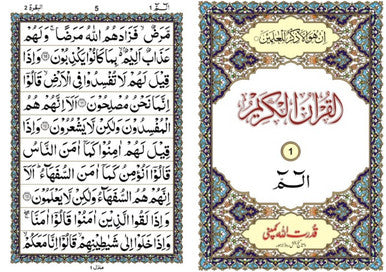 البقرة ٢
5
الٓمّٓ ١
مَّرَضٌ ۙ فَزَادَهُمُ اللّٰهُ مَرَضًا ۚ وَلَهُمْ
عَذَابٌ اَلِيْمٌۢ ۙ بِمَا كَانُوْا يَكْذِبُوْنَ ﴿۱۰﴾ وَاِذَا
قِيْلَ لَهُمْ لَا تُفْسِدُوْا فِي الْاَرْضِ ۙ قَالُوْٓا
اِنَّمَا نَحْنُ مُصْلِحُوْنَ ﴿۱۱﴾ اَلَآ اِنَّهُمْ هُمُ
الْمُفْسِدُوْنَ وَلٰكِنْ لَّا يَشْعُرُوْنَ ﴿۱۲﴾ وَاِذَا
قِيْلَ لَهُمْ اٰمِنُوْا كَمَآ اٰمَنَ النَّاسُ
قَالُوْٓا اَنُؤْمِنُ كَمَآ اٰمَنَ السُّفَهَآءُ ؕ اَلَآ
اِنَّهُمْ هُمُ السُّفَهَآءُ وَلٰكِنْ لَّا يَعْلَمُوْنَ ﴿۱۳﴾
وَاِذَا لَقُوا الَّذِيْنَ اٰمَنُوْا قَالُوْٓا اٰمَنَّا ۚ
وَاِذَا خَلَوْا اِلٰى شَيٰطِيْنِهِمْ ۙ قَالُوْٓا اِنَّا مَعَكُمْ ۙ
منزل ١
اِنْ هُوَ اِلَّا ذِكْرٌ لِّلْعٰلَمِيْنَ
القرآن الكريم
1
الٓمّٓ
قدرت اللہ کمپنی